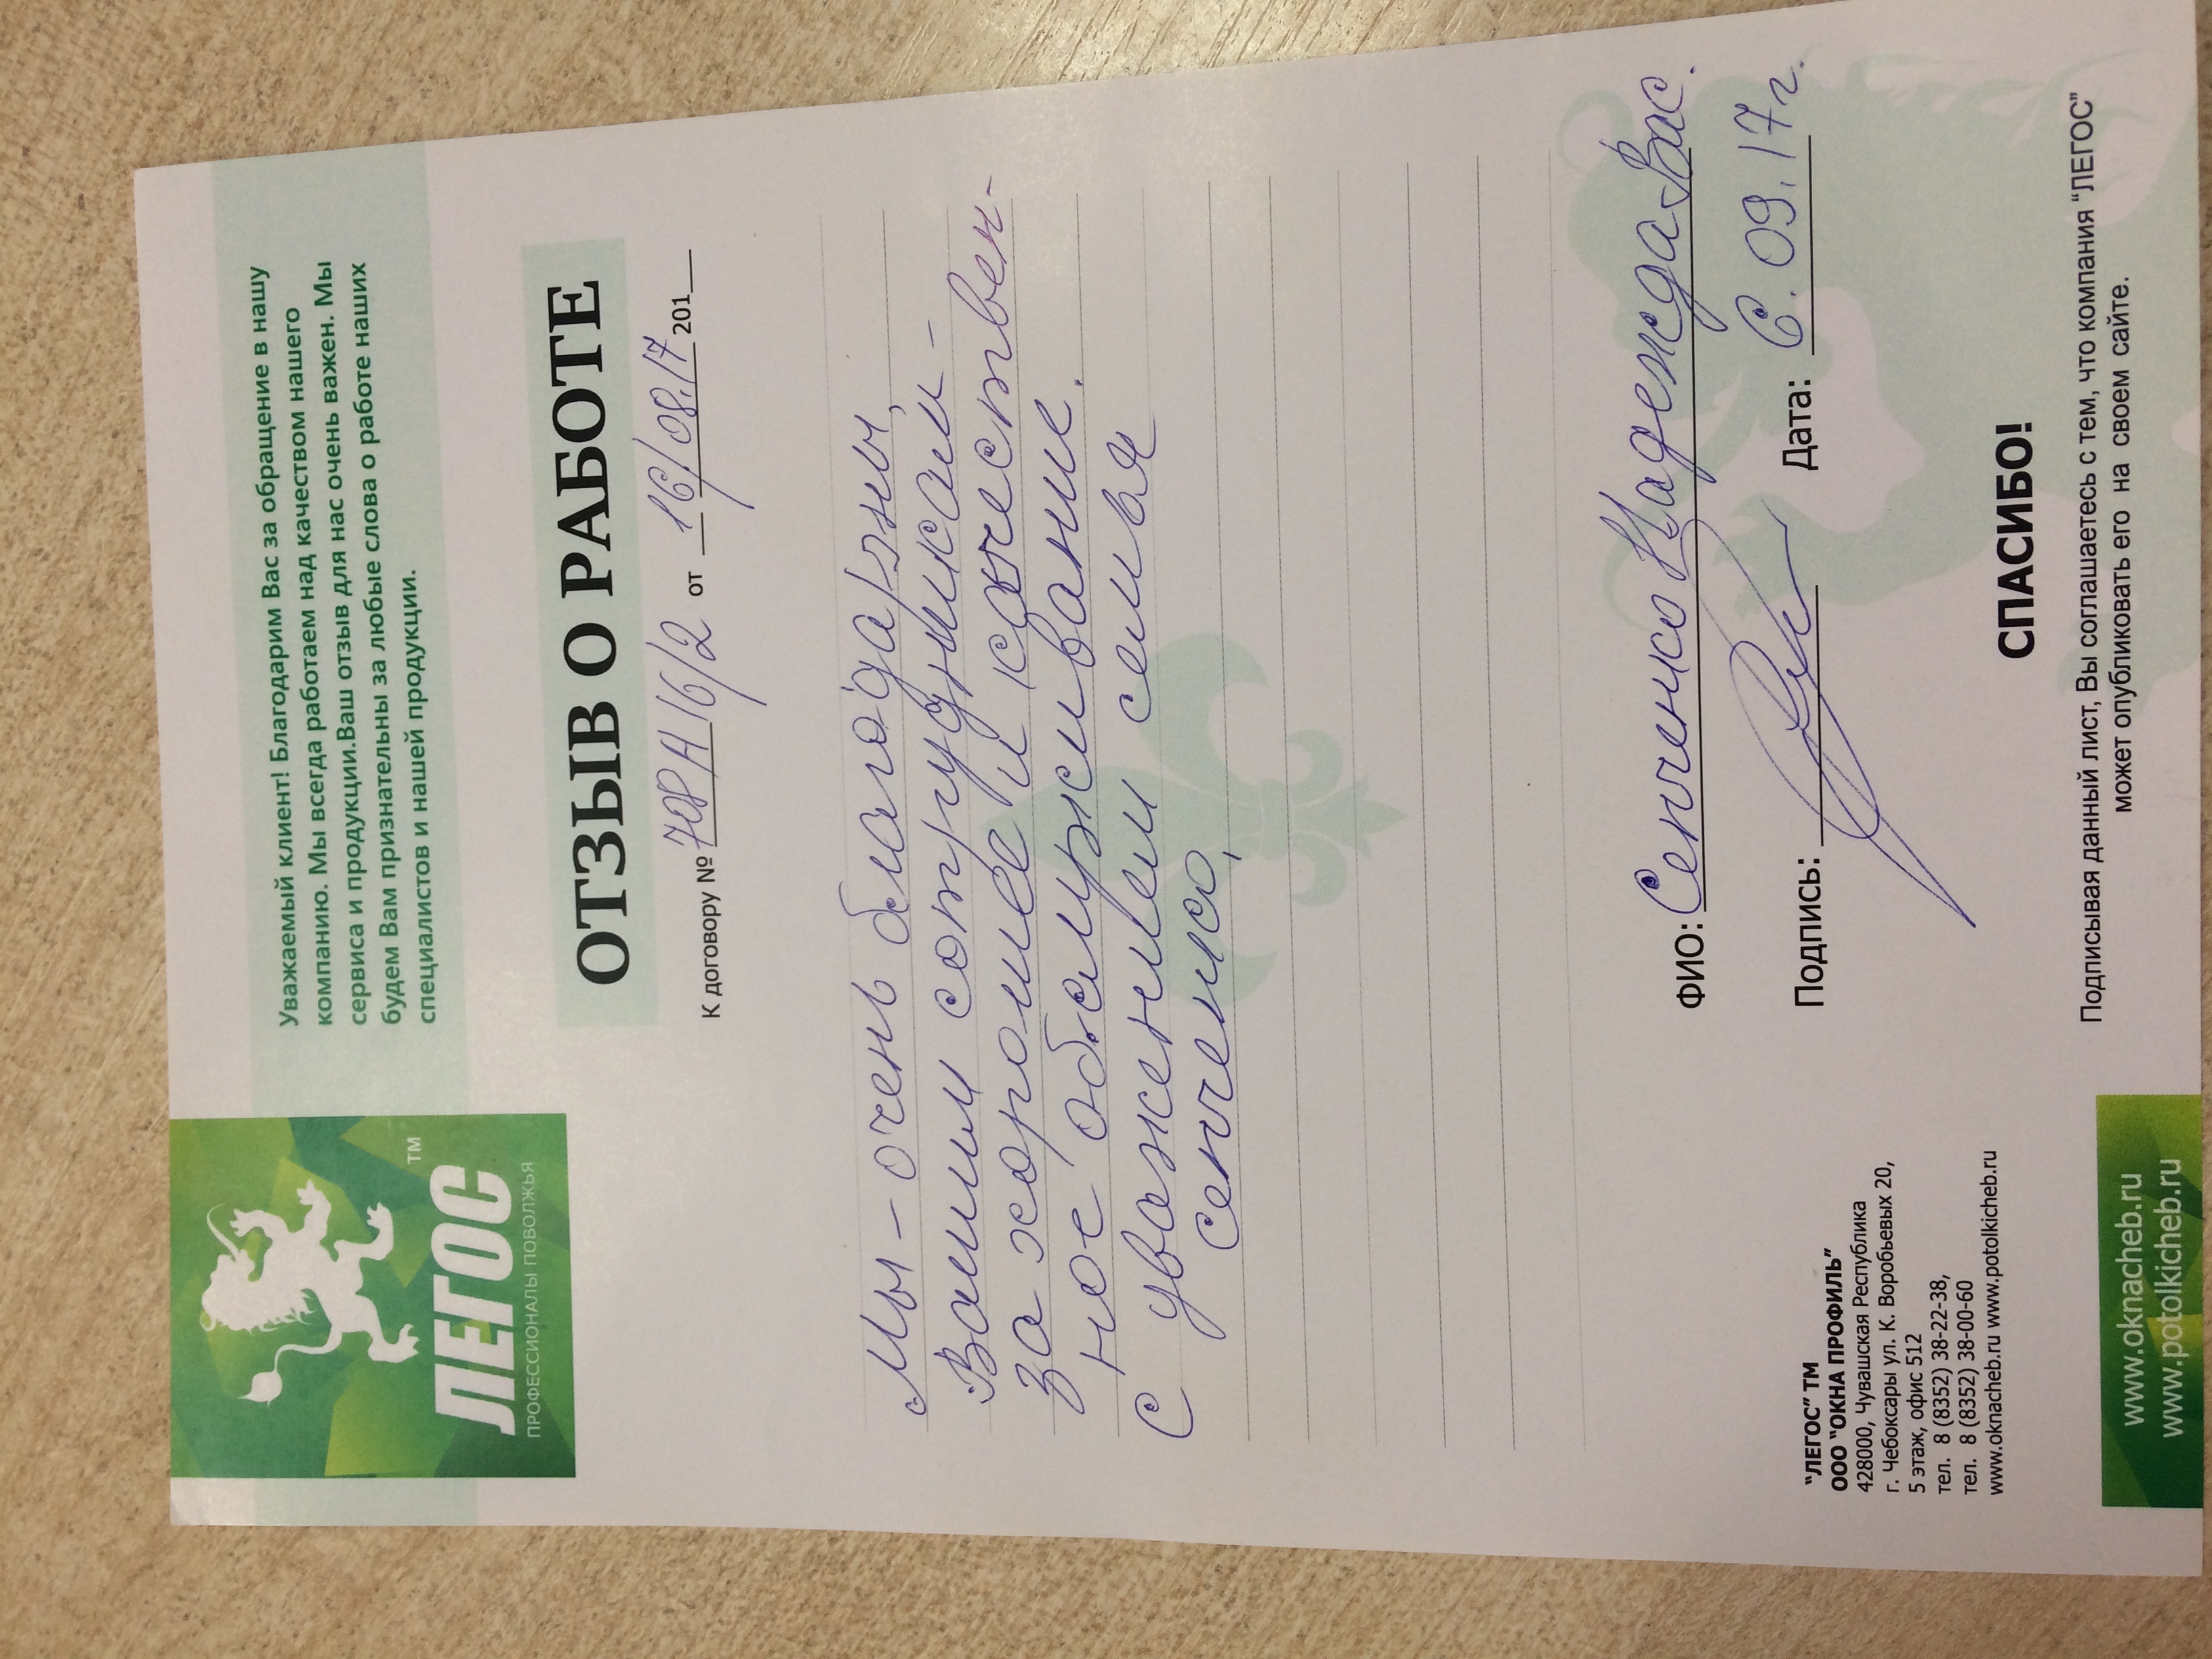 ЛЕГОС
TM
ПРОФЕССИОНАЛЫ ПОВОЛЖЬЯ
Уважаемый клиент! Благодарим Вас за обращение в нашу
компанию. Мы всегда работаем над качеством нашего
сервиса и продукции.Ваш отзыв для нас очень важен. Мы
будем Вам признательны за любые слова о работе наших
специалистов и нашей продукции.
ОТЗЫВ О РАБОТЕ
К договору № 708 А 16/2 от 16/08.17 201
Мы - очень благодарны,
Вашим сотрудникам -
за хорошее и качествен-
ное обслуживание.
С уважением семья
Сенченко,
ФИО: Сенченко Надежда Вас.
Подпись:
Дата: 6.09.17г.
"ЛЕГОС" ТМ
ООО "ОКНА ПРОФИЛЬ"
428000, Чувашская Республика
г. Чебоксары ул. К. Воробьевых 20,
5 этаж, офис 512
тел. 8 (8352) 38-22-38,
тел. 8 (8352) 38-00-60
www.oknacheb.ru www.potolkicheb.ru
СПАСИБО!
Подписывая данный лист, Вы соглашаетесь с тем, что компания "ЛЕГОС"
может опубликовать его на своем сайте.
www.oknacheb.ru
www.potolkicheb.ru